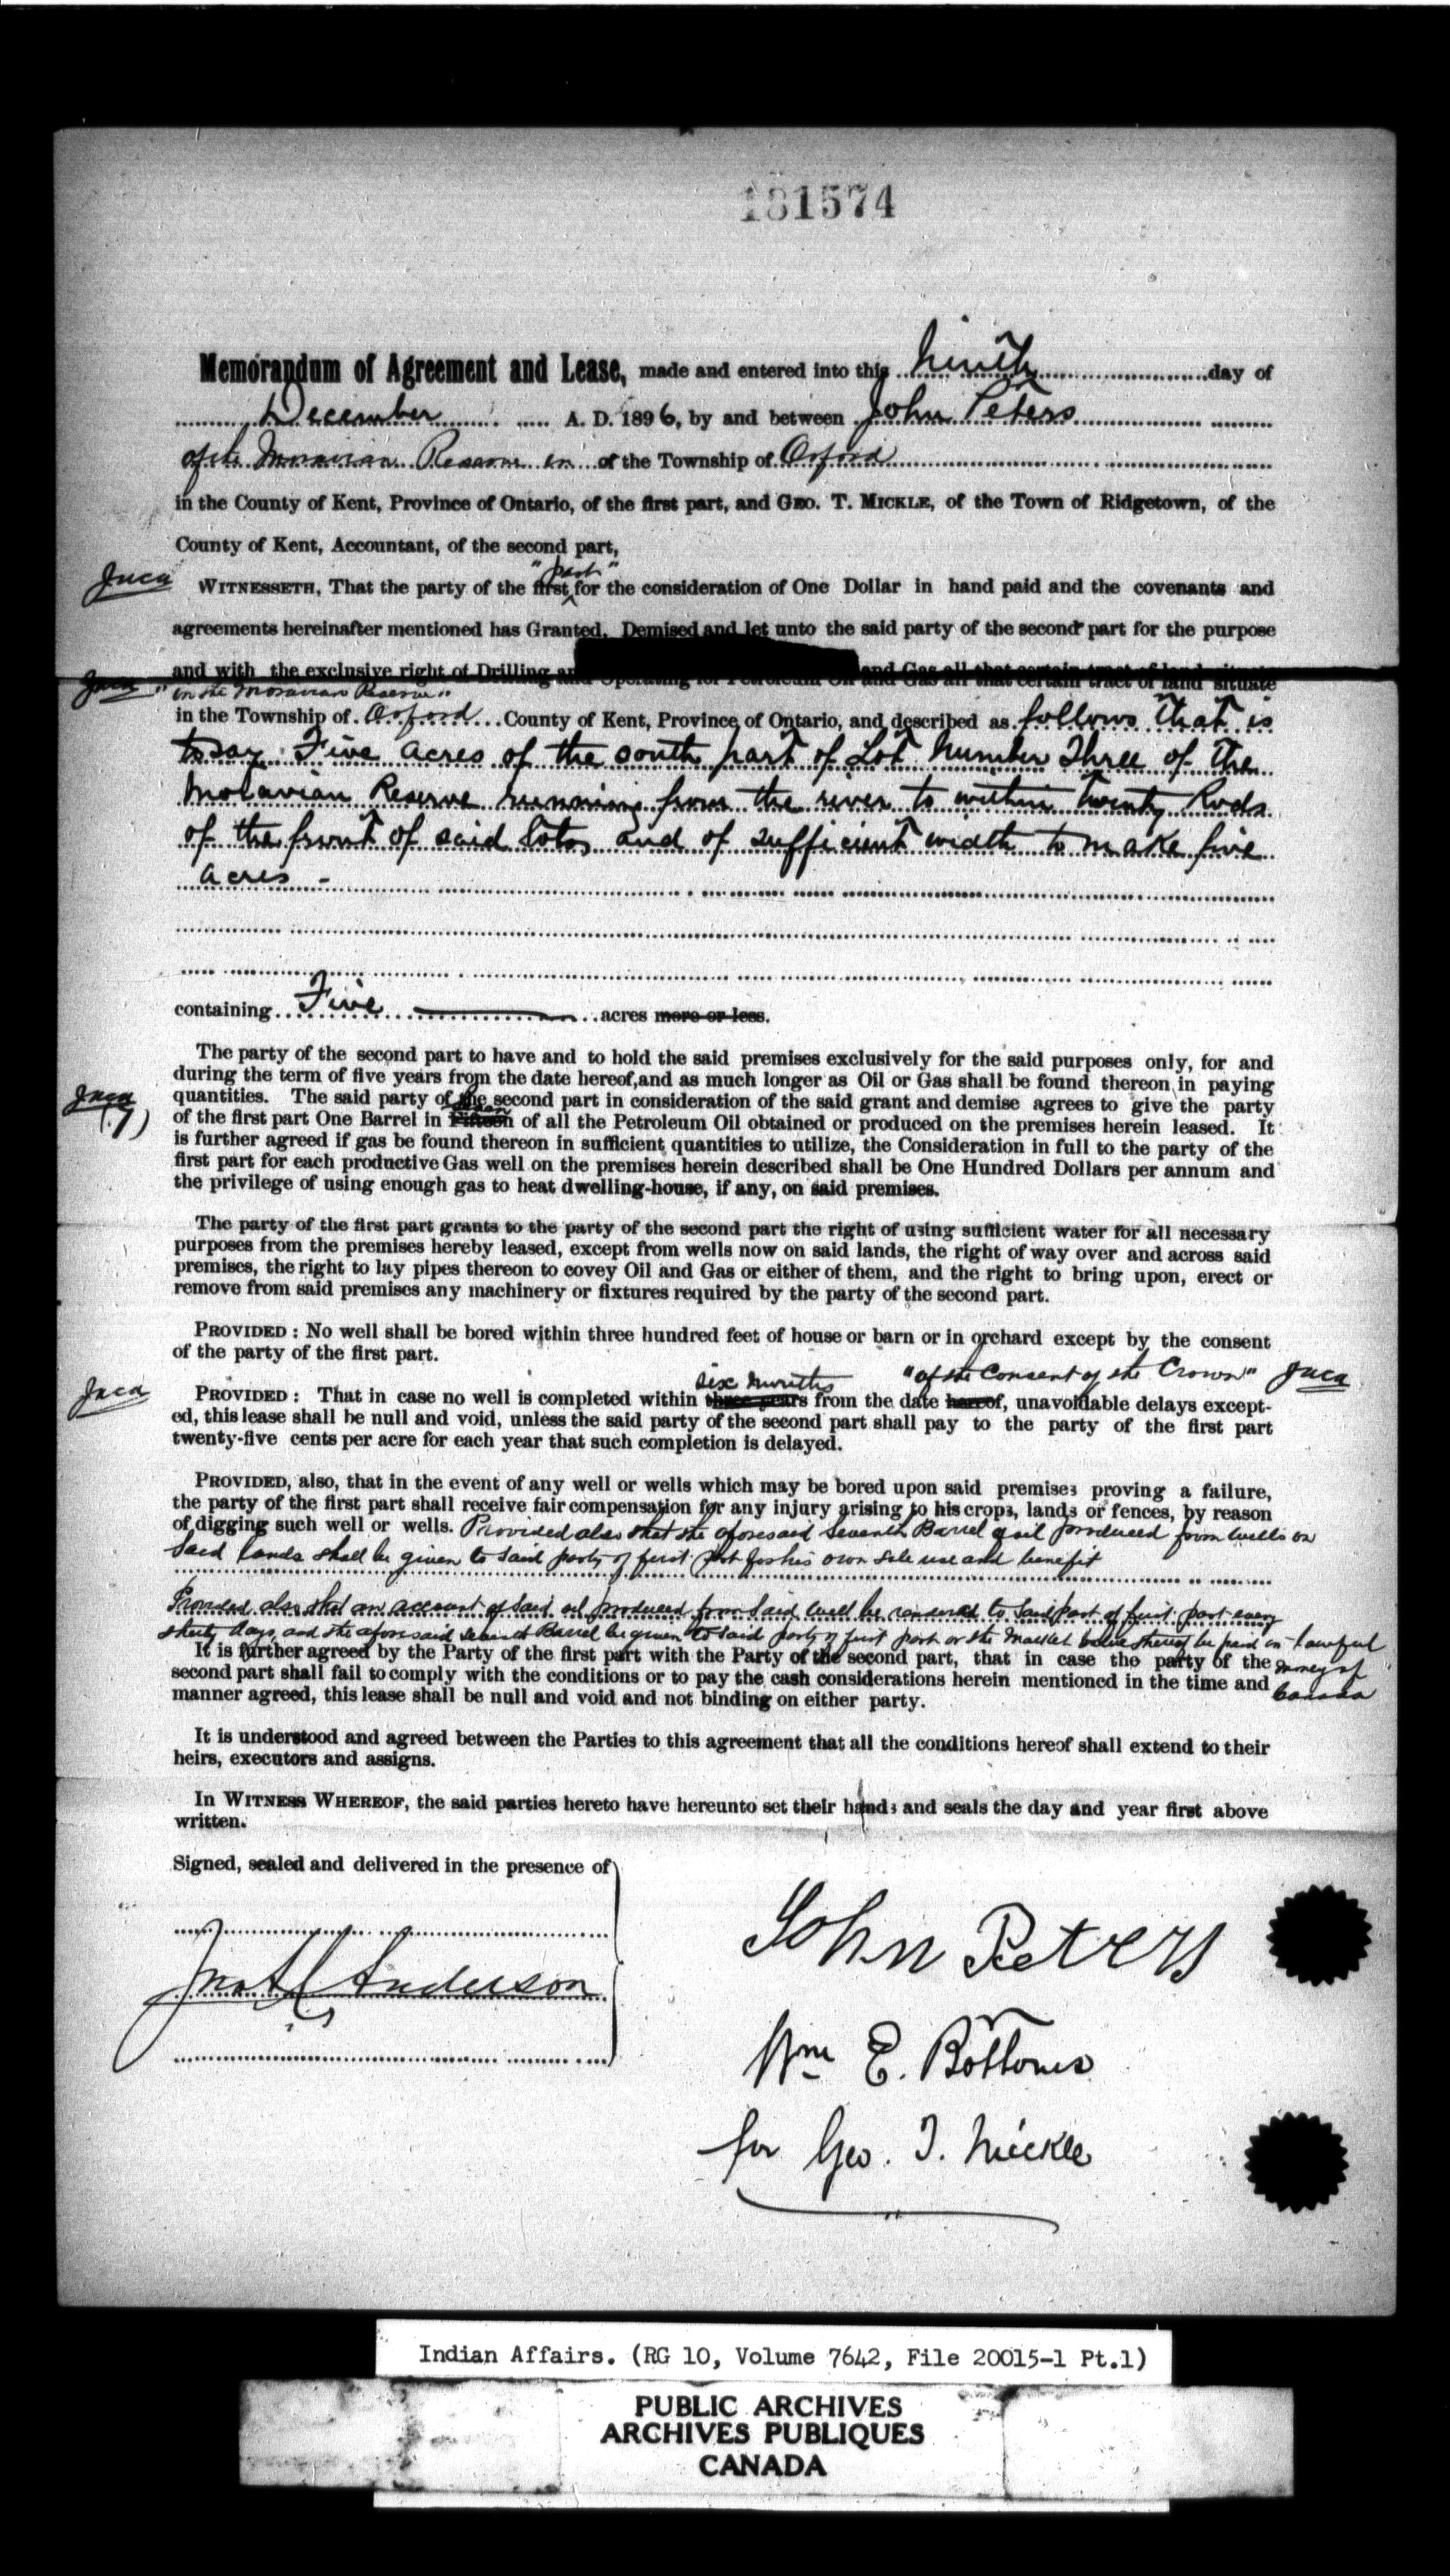 181574
Memorandum of Agreement and Lease, made and entered into this Ninth day of
December A. D. 1896, by and between John Peters
of the Moravian Reserve in of the Township of Orford
in the County of Kent, Province of Ontario, of the first part, and GEO. T. MICKLE, of the Town of Ridgetown, of the
County of Kent, Accountant, of the second part,
"part"
WITNESSETH, That the party of the first for the consideration of One Dollar in hand paid and the covenants and
agreements hereinafter mentioned has Granted, Demised and let unto the said party of the second part for the purpose
and with the exclusive right of Drilling and Operating for Petroleum Oil and Gas all that certain tract of land situate
"in the Moravian Reserve"
in the Township of Orford County of Kent, Province of Ontario, and described as follows that is
to say Five acres of the south part of Lot Number Three of the
Moravian Reserve running from the river to within twenty Rods
of the front of said lots and of sufficient width to make five
acres -
containing Five acres more or less.
The party of the second part to have and to hold the said premises exclusively for the said purposes only, for and
during the term of five years from the date hereof, and as much longer as Oil or Gas shall be found thereon in paying
quantities. The said party of the second part in consideration of the said grant and demise agrees to give the party
(7)
seven
of the first part One Barrel in Fifteen of all the Petroleum Oil obtained or produced on the premises herein leased. It
is further agreed if gas be found thereon in sufficient quantities to utilize, the Consideration in full to the party of the
first part for each productive Gas well on the premises herein described shall be One Hundred Dollars per annum and
the privilege of using enough gas to heat dwelling-house, if any, on said premises.
The party of the first part grants to the party of the second part the right of using sufficient water for all necessary
purposes from the premises hereby leased, except from wells now on said lands, the right of way over and across said
premises, the right to lay pipes thereon to covey Oil and Gas or either of them, and the right to bring upon, erect or
remove from said premises any machinery or fixtures required by the party of the second part.
PROVIDED: No well shall be bored within three hundred feet of house or barn or in orchard except by the consent
of the party of the first part.
six months "of the Consent of the Crown"
PROVIDED: That in case no well is completed within three years from the date hereof, unavoidable delays except-
ed, this lease shall be null and void, unless the said party of the second part shall pay to the party of the first part
twenty-five cents per acre for each year that such completion is delayed.
PROVIDED, also, that in the event of any well or wells which may be bored upon said premises proving a failure,
the party of the first part shall receive fair compensation for any injury arising to his crops, lands or fences, by reason
of digging such well or wells. Provided also that the aforesaid seventh Barrel of oil produced from wells on
said lands shall be given to said party of first part for his own sole use and benefit
Provided also that an account of said oil produced from said well be rendered to said part of first part every
thirty days and the aforesaid seventh Barrel be given to said party of first part or the market value thereof be paid in lawful
money of
Canada
It is further agreed by the Party of the first part with the Party of the second part, that in case the party of the
second part shall fail to comply with the conditions or to pay the cash considerations herein mentioned in the time and
manner agreed, this lease shall be null and void and not binding on either party.
It is understood and agreed between the Parties to this agreement that all the conditions hereof shall extend to their
heirs, executors and assigns.
In WITNESS WHEREOF, the said parties hereto have hereunto set their hands and seals the day and year first above
written.
Signed, sealed and delivered in the presence of
John Peters
Anderson
Wm E. Bottoms
for Geo. T. Mickle
Indian Affairs. (RG 10, Volume 7642, File 20015-1 Pt.1)
PUBLIC ARCHIVES
ARCHIVES PUBLIQUES
CANADA